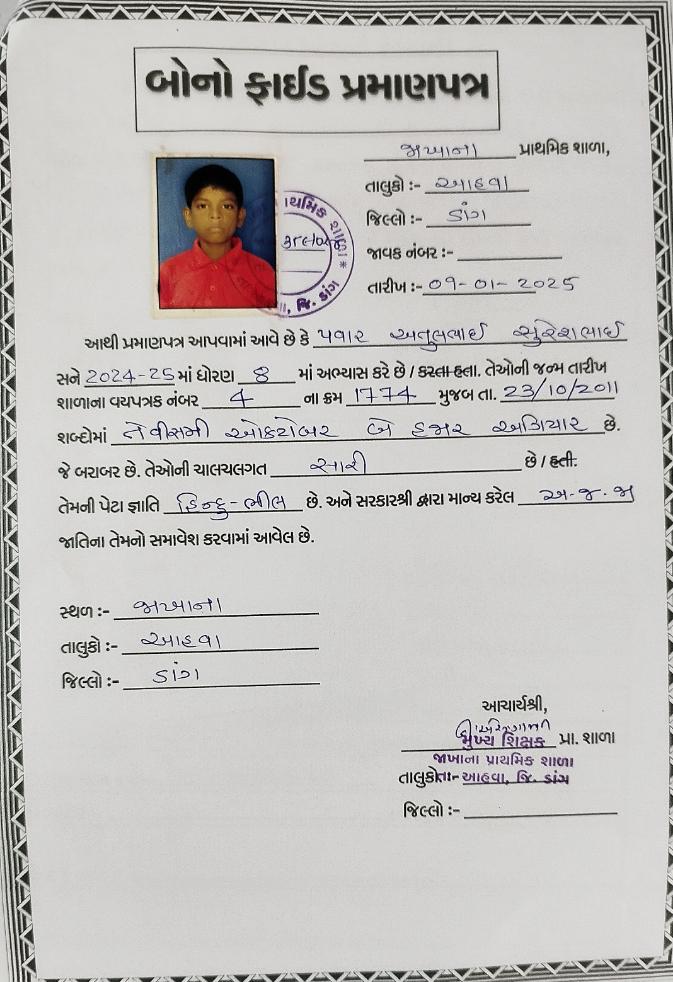 બોનો ફાઈડ પ્રમાણપત્ર
જાખાના પ્રાથમિક શાળા,
તાલુકો :- આહવા
જિલ્લો :- ડાંગ
જાવક નંબર :-
તારીખ :- 09-01-2025
પ્રાથમિક શાળા *
જિ. ડાંગ
આથી પ્રમાણપત્ર આપવામાં આવે છે કે પવાર અતુલભાઈ સુરેશભાઈ
સને 2024-25 માં ધોરણ 8 માં અભ્યાસ કરે છે / કરતા હતા. તેઓની જન્મ તારીખ
શાળાના વયપત્રક નંબર 4 ના ક્રમ 1774 મુજબ તા. 23/10/2011
શબ્દોમાં તેવીસમી ઓક્ટોબર બે હજાર અગિયાર છે.
જે બરાબર છે. તેઓની ચાલચલગત સારી છે / હતી.
તેમની પેટા જ્ઞાતિ હિન્દુ-ભીલ છે. અને સરકારશ્રી દ્વારા માન્ય કરેલ અ.જ.જા
જાતિના તેમનો સમાવેશ કરવામાં આવેલ છે.
સ્થળ :- જાખાના
તાલુકો :- આહવા
જિલ્લો :- ડાંગ
આચાર્યશ્રી,
મુખ્ય શિક્ષક પ્રા. શાળા
જાખાના પ્રાથમિક શાળા
તાલુકો તા.- આહવા, જિ. ડાંગ
જિલ્લો :-